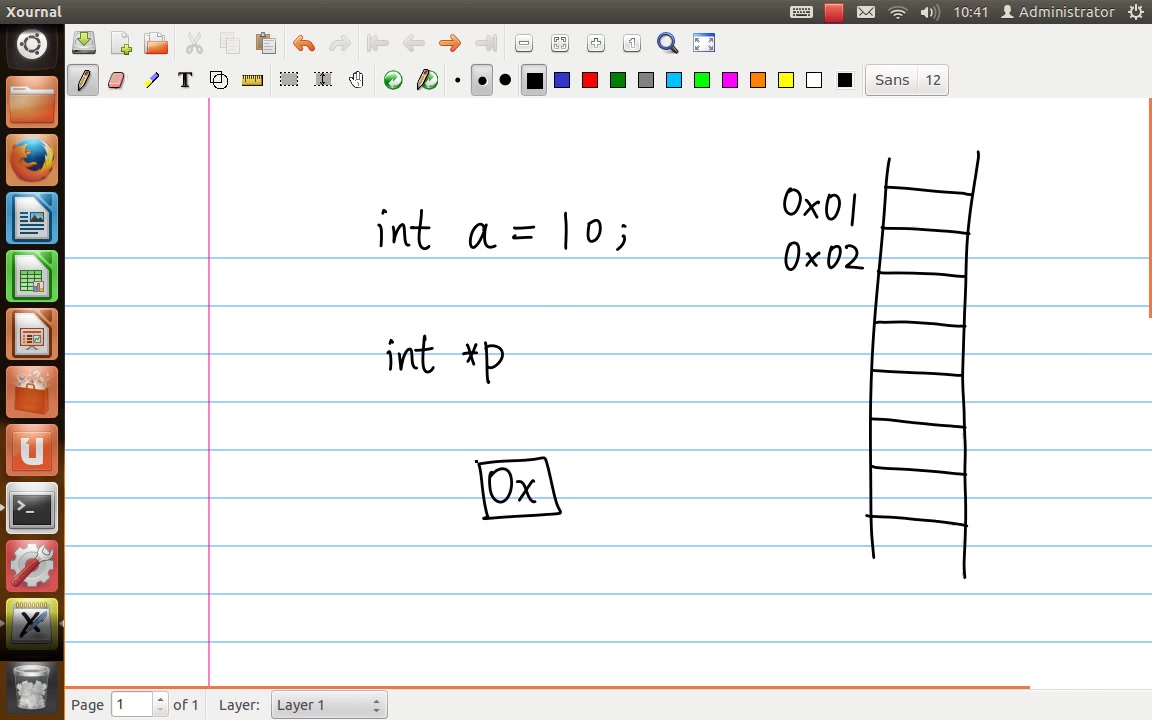 Xournal
10:41 Administrator
Sans 12
int a = 10;
0x01
0x02
int *p
0x
Page 1 of 1 Layer: Layer 1